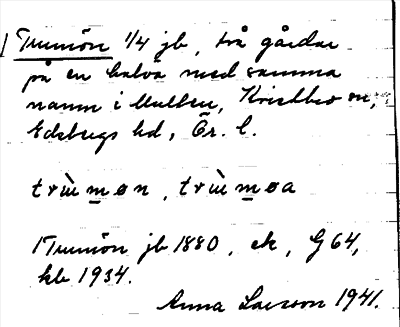 Trumön 1/4 jb, två gårdar
på en halvö med samma
namn i Multen, Kvistbro sn,
Edsbergs hd, Ör. l.
trùm̲øn, trùm̲øa
Trumön jb 1880, ek, G 64,
kb 1934.
Anna Larsson 1941.